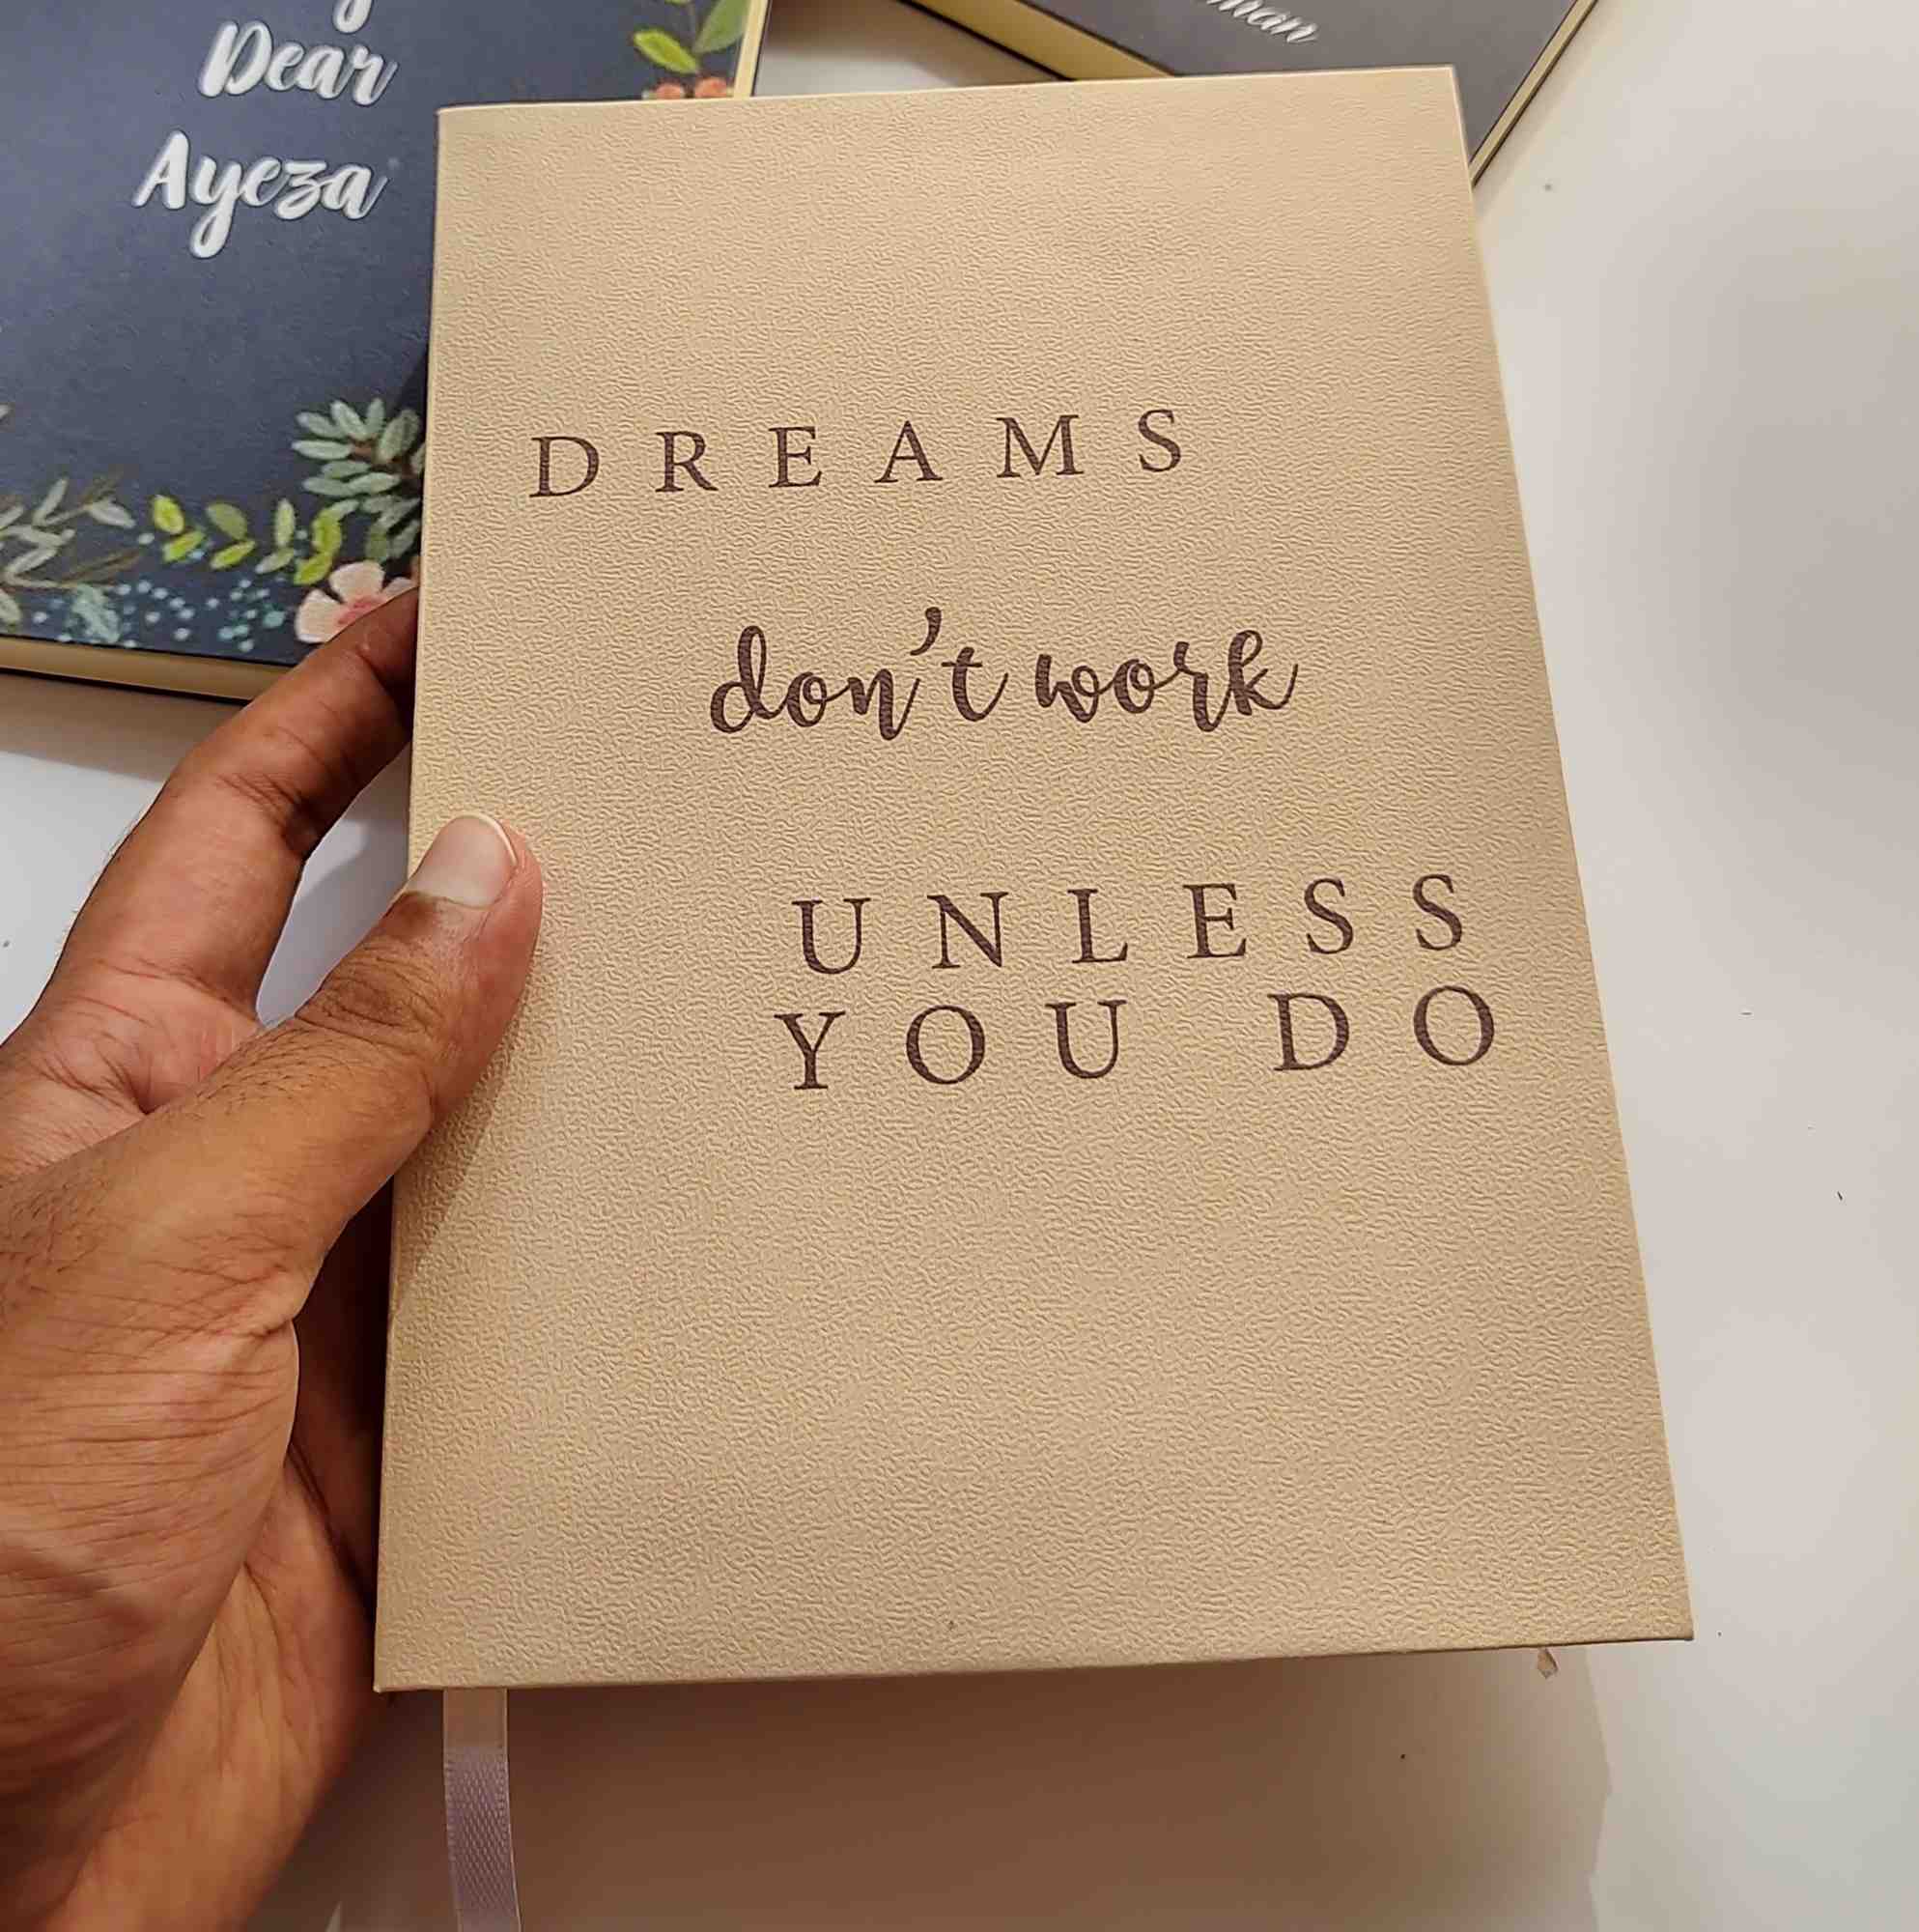 Dear
Ayeza
DREAMS
don't work
UNLESS
YOU DO